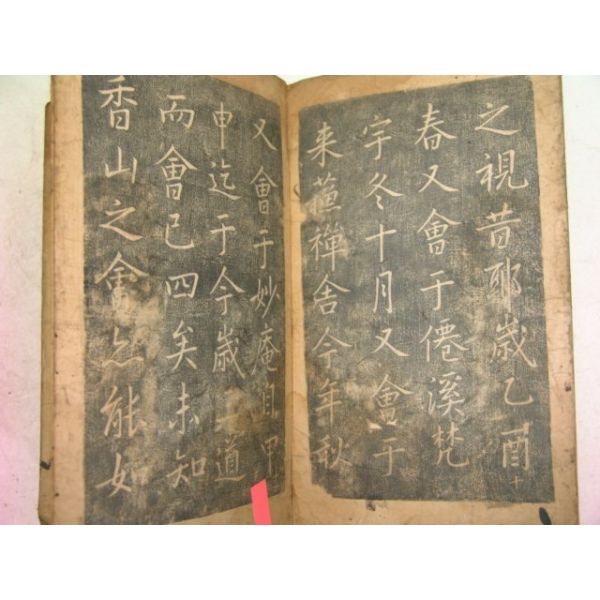 之視昔耶歲乙酉
春又會于僊溪梵
宇冬十月又會于
来蘓禪舍今年秋
又會于妙庵自甲
申迄于今歲一道
而會已四矣未知
香山之會亦能如